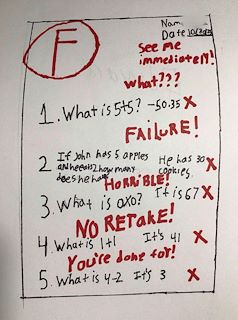 F
Nam
Date 10/2
see me
immediately!
what???
1. What is 5+5? -50.35 X
FAILURE!
2 If John has 5 apples He has 30 X
and he eats 2 how many cookies.
does he have
HORRIBLE!
3. What is 0x0? It is 67 X
NO RETAKE!
4. What is 1+1 It's 41 X
You're done for!
5. What is 4-2 It's 3 X